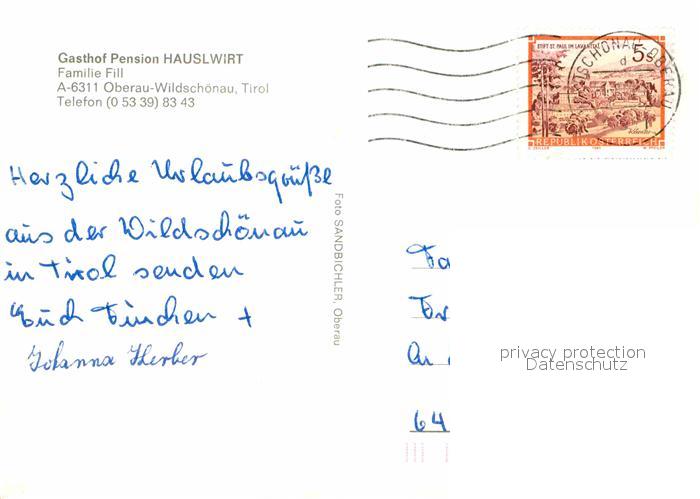 Gasthof Pension HAUSLWIRT
Familie Fill
A-6311 Oberau-Wildschönau, Tirol
Telefon (0 53 39) 83 43
STIFT ST. PAUL IM LAVANTTAL
5
REPUBLIK ÖSTERREICH
Herzliche Urlaubsgrüße
aus der Wildschönau
in Tirol senden
Euch Finchen +
Johanna Herber
Foto SANDBICHLER, Oberau
Fa
An
64
privacy protection
Datenschutz